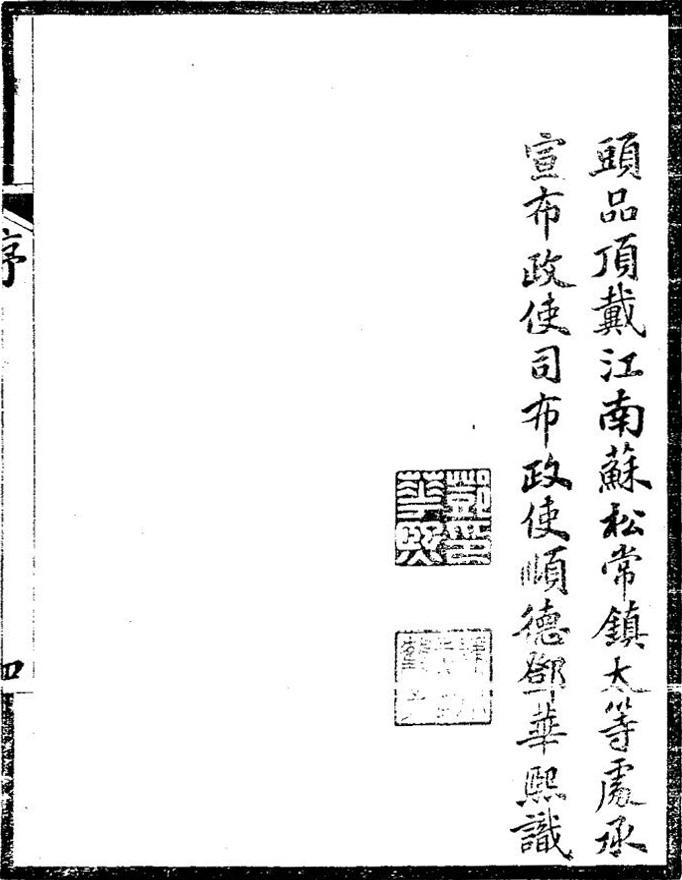 頭品頂戴江南蘇松常鎮太等處承
宣布政使司布政使順德鄧華熙識
鄧華熙印
序
四